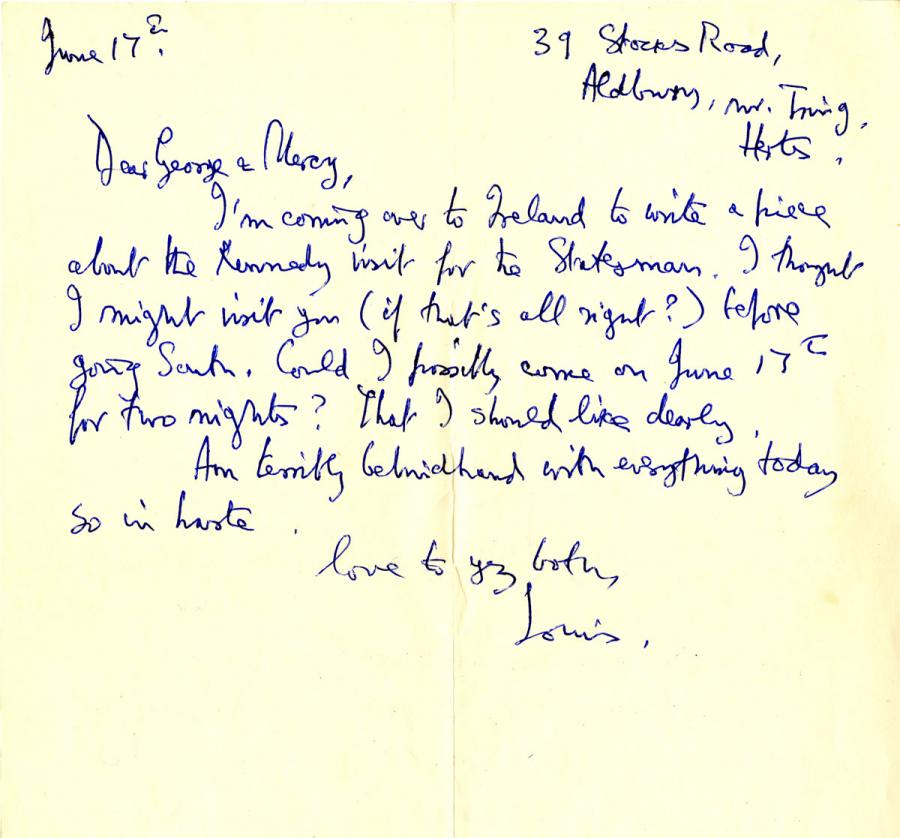 June 17th.
39 Stocks Road,
Aldbury, nr. Tring,
Herts.
Dear George & Mercy,
I'm coming over to Ireland to write a piece
about the Kennedy visit for the Statesman. I thought
I might visit you (if that's all right?) before
going South. Could I possibly come on June 17th
for two nights? That I should like dearly.
Am terribly behindhand with everything today
so in haste.
love to yez both,
Louis.